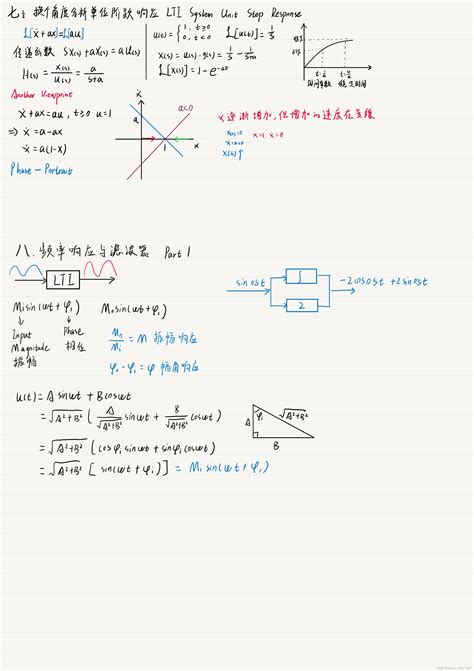 七: 换个角度分析单位阶跃响应 LTI System Unit Step Response
L[ẋ+ax]=L[au]
传递函数 SX(s)+aX(s)=aU(s)
H(s)=X(s)/U(s)=a/(s+a)
u(t)={1, t≥0
0, t<0
L[u(t)]=1/s
X(s)=U(s)·G(s)=1/s-1/(s+a)
=1-e^-at
63%
时间常数 稳定时间
Another Viewpoint
ẋ+ax=au, t≥0 u=1
⇒ ẋ=a-ax
ẋ=a(1-x)
Phase-Portrait
ẋ
a
a<0
1
x
ẋ逐渐增加,但增加的速度在变缓
x(0)=0
ẋ=a>0
x(t)↑
x=1 ẋ=0
八. 频率响应与滤波器 Part 1
LTI
Mi sin(ωt+φi) Mo sin(ωt+φo)
Input Phase
Magnitude 相位
振幅
=M 振幅响应
φo-φi=φ 幅角响应
sin0.5t
∫
2
-2cos0.5t+2sin0.5t
u(t)=A sinωt+B cosωt
=√A²+B² (A/√A²+B² sinωt+B/√A²+B² cosωt)
=√A²+B² (cosφi sinωt+sinφi cosωt)
=√A²+B² [sin(ωt+φi)]=Mi sin(ωt+φi)
A
φi
√A²+B²
B